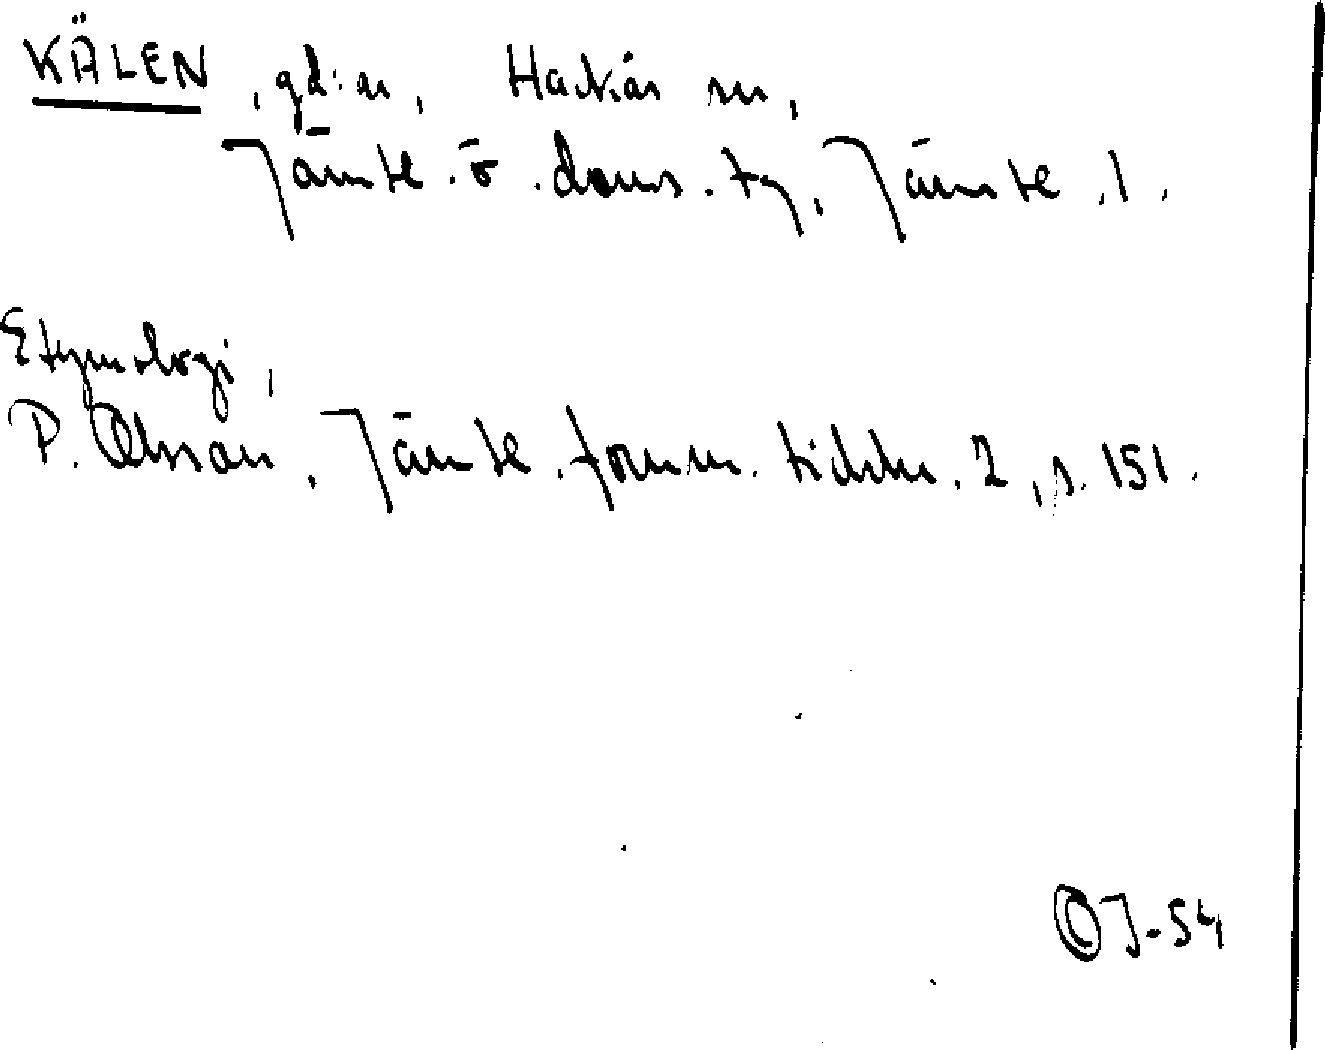 KÄLEN, gd:ar, Hackås sn,
Jämtl. ö. doms. tg, Jämtl. l.
Etymologi,
P. Olsson, Jämtl. fornm. tidskr. 2, s. 151.
©J-54